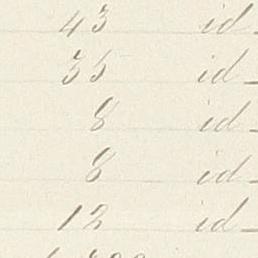 43 id.
35 id.
8 id.
8 id.
12 id.